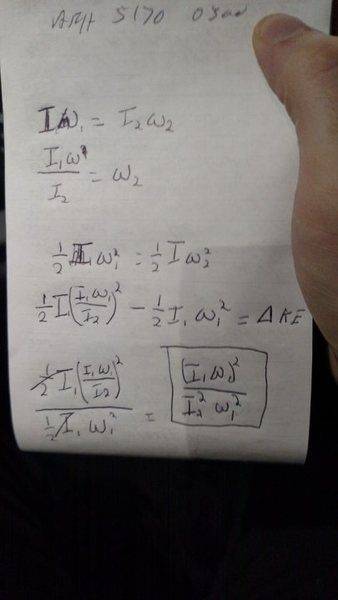 5170
I₁ω₁ = I₂ω₂
I₁ω¹/I₂ = ω₂
½ I₁ω₁² = ½ I ω₂²
½ I(I₁ω₁/I₂)² - ½ I₁ ω₁² = ΔKE
½ I₁(I₁ω₁/I₂)² / ½ I₁ ω₁² = (I₁ω₁)² / I₂² ω₁²